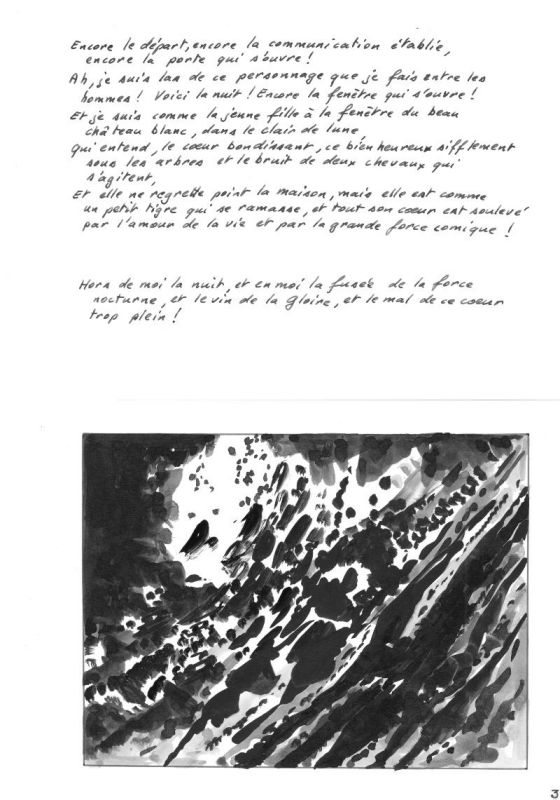 Encore le départ, encore la communication établie,
encore la porte qui s'ouvre !
Ah, je suis las de ce personnage que je fais entre les
hommes ! Voici la nuit ! Encore la fenêtre qui s'ouvre !
Et je suis comme la jeune fille à la fenêtre du beau
château blanc, dans le clair de lune,
qui entend, le cœur bondissant, ce bienheureux sifflement
sous les arbres et le bruit de deux chevaux qui
s'agitent,
Et elle ne regrette point la maison, mais elle est comme
un petit tigre qui se ramasse, et tout son cœur est soulevé
par l'amour de la vie et par la grande force comique !
Hors de moi la nuit, et en moi la fusée de la force
nocturne, et le vin de la Gloire, et le mal de ce cœur
trop plein !
3